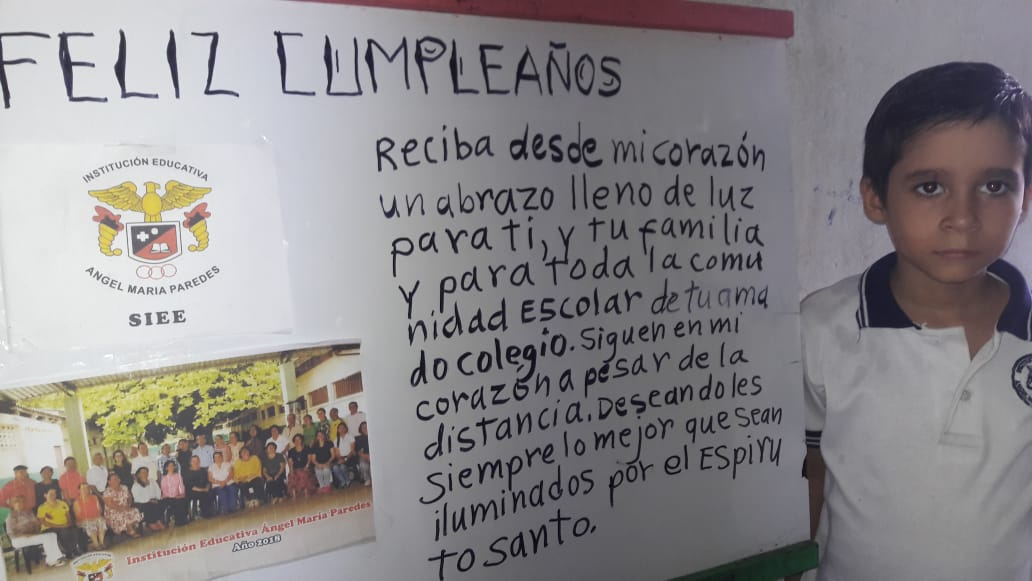 FELIZ CUMPLEAÑOS
INSTITUCIÓN EDUCATIVA
ANGEL MARIA PAREDES
SIEE
Reciba desde mi corazón
un abrazo lleno de luz
para ti, y tu familia
y para toda la comu
nidad Escolar de tu ama
do colegio. Siguen en mi
corazón a pesar de la
distancia. Deseandoles
siempre lo mejor que sean
iluminados por el Espiru
to santo.
Institución Educativa Ángel María Paredes
Año 2018